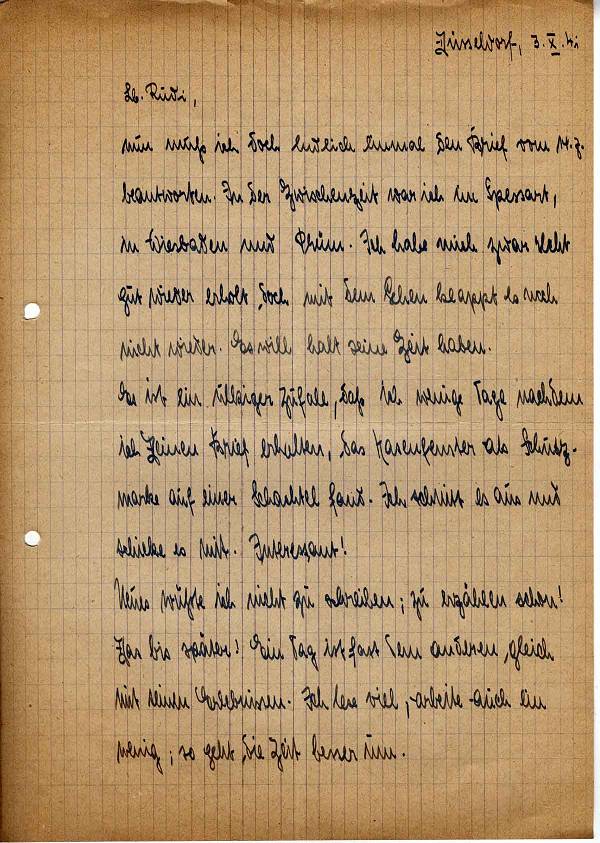 Düsseldorf, 3. X. 41
Lb. Rudi,
nun muß ich doch endlich einmal den Brief vom 14. 7.
beantworten. In der Zwischenzeit war ich im Spessart,
in Wiesbaden und Prüm. Ich habe mich zwar recht
gut wieder erholt, doch mit dem Gehen klappt es noch
nicht wieder. Es will halt seine Zeit haben.
Es ist ein ulkiger Zufall, daß ich wenige Tage nachdem
ich Deinen Brief erhalten, das Hasenfenster als Schutz-
marke auf einer Schachtel fand. Ich schnitt es aus und
schicke es mit. Interessant!
Neues wüßte ich nicht zu schreiben; zu erzählen schon!
Das bis später! Ein Tag ist fast dem anderen gleich
mit seinen Erlebnissen. Ich lese viel, arbeite auch ein
wenig; so geht die Zeit besser um.